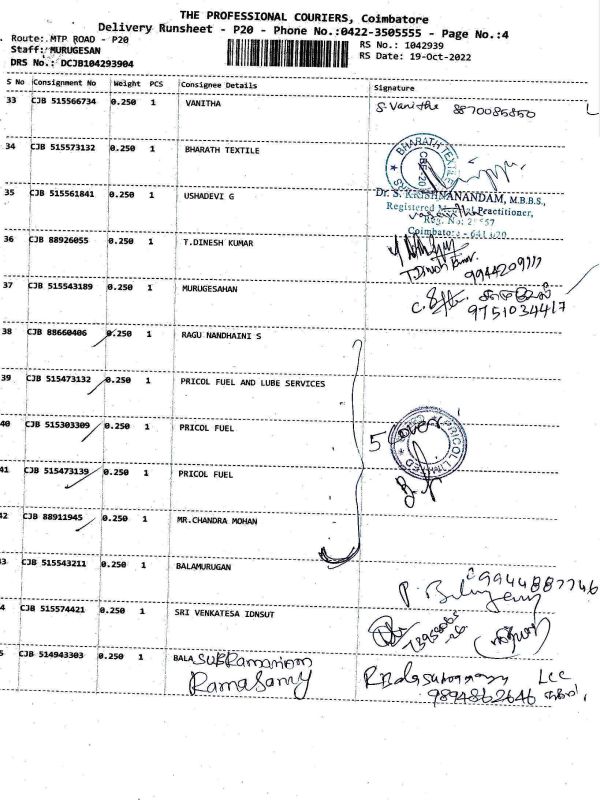 THE PROFESSIONAL COURIERS, Coimbatore
Delivery Runsheet - P20 - Phone No.:0422-3505555 - Page No.:4
Route: MTP ROAD - P20
RS No.: 1042939
Staff: MURUGESAN
RS Date: 19-Oct-2022
DRS No.: DCJB104293904
S No Consignment No Weight PCS Consignee Details Signature
33 CJB 515566734 0.250 1 VANITHA S. Vanitha 8870085850
34 CJB 515573132 0.250 1 BHARATH TEXTILE
BHARATH
35 CJB 515561841 0.250 1 USHADEVI G
Dr. S. KRISHNANANDAM, M.B.B.S.,
Registered Practitioner,
Reg. No:
Coimbatore - 641 020
36 CJB 88926055 0.250 1 T.DINESH KUMAR
T.Dinesh Kumar
37 CJB 515543189 0.250 1 MURUGESAHAN
9751034417
38 CJB 88660406 0.250 1 RAGU NANDHAINI S
39 CJB 515473132 0.250 1 PRICOL FUEL AND LUBE SERVICES
40 CJB 515303309 0.250 1 PRICOL FUEL
5 Cover
PRICOL
41 CJB 515473139 0.250 1 PRICOL FUEL
42 CJB 88911945 0.250 1 MR.CHANDRA MOHAN
3 CJB 515543211 0.250 1 BALAMURUGAN
9944887746
4 CJB 515574421 0.250 1 SRI VENKATESA IDNSUT
5 CJB 514943303 0.250 1 BALA
RamaSamy
9894862646